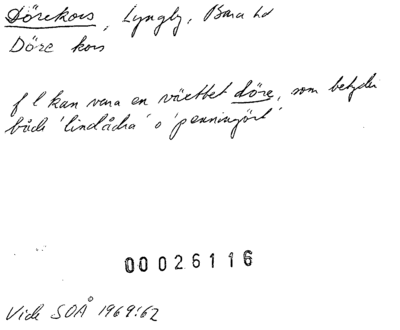 Dörekors, Lyngby, Bara hd
Döre kors
f l kan vara en växtbet döre, som betyder
både 'lindådra' o 'penningört'
00026116
Vide SOÅ 1969:62